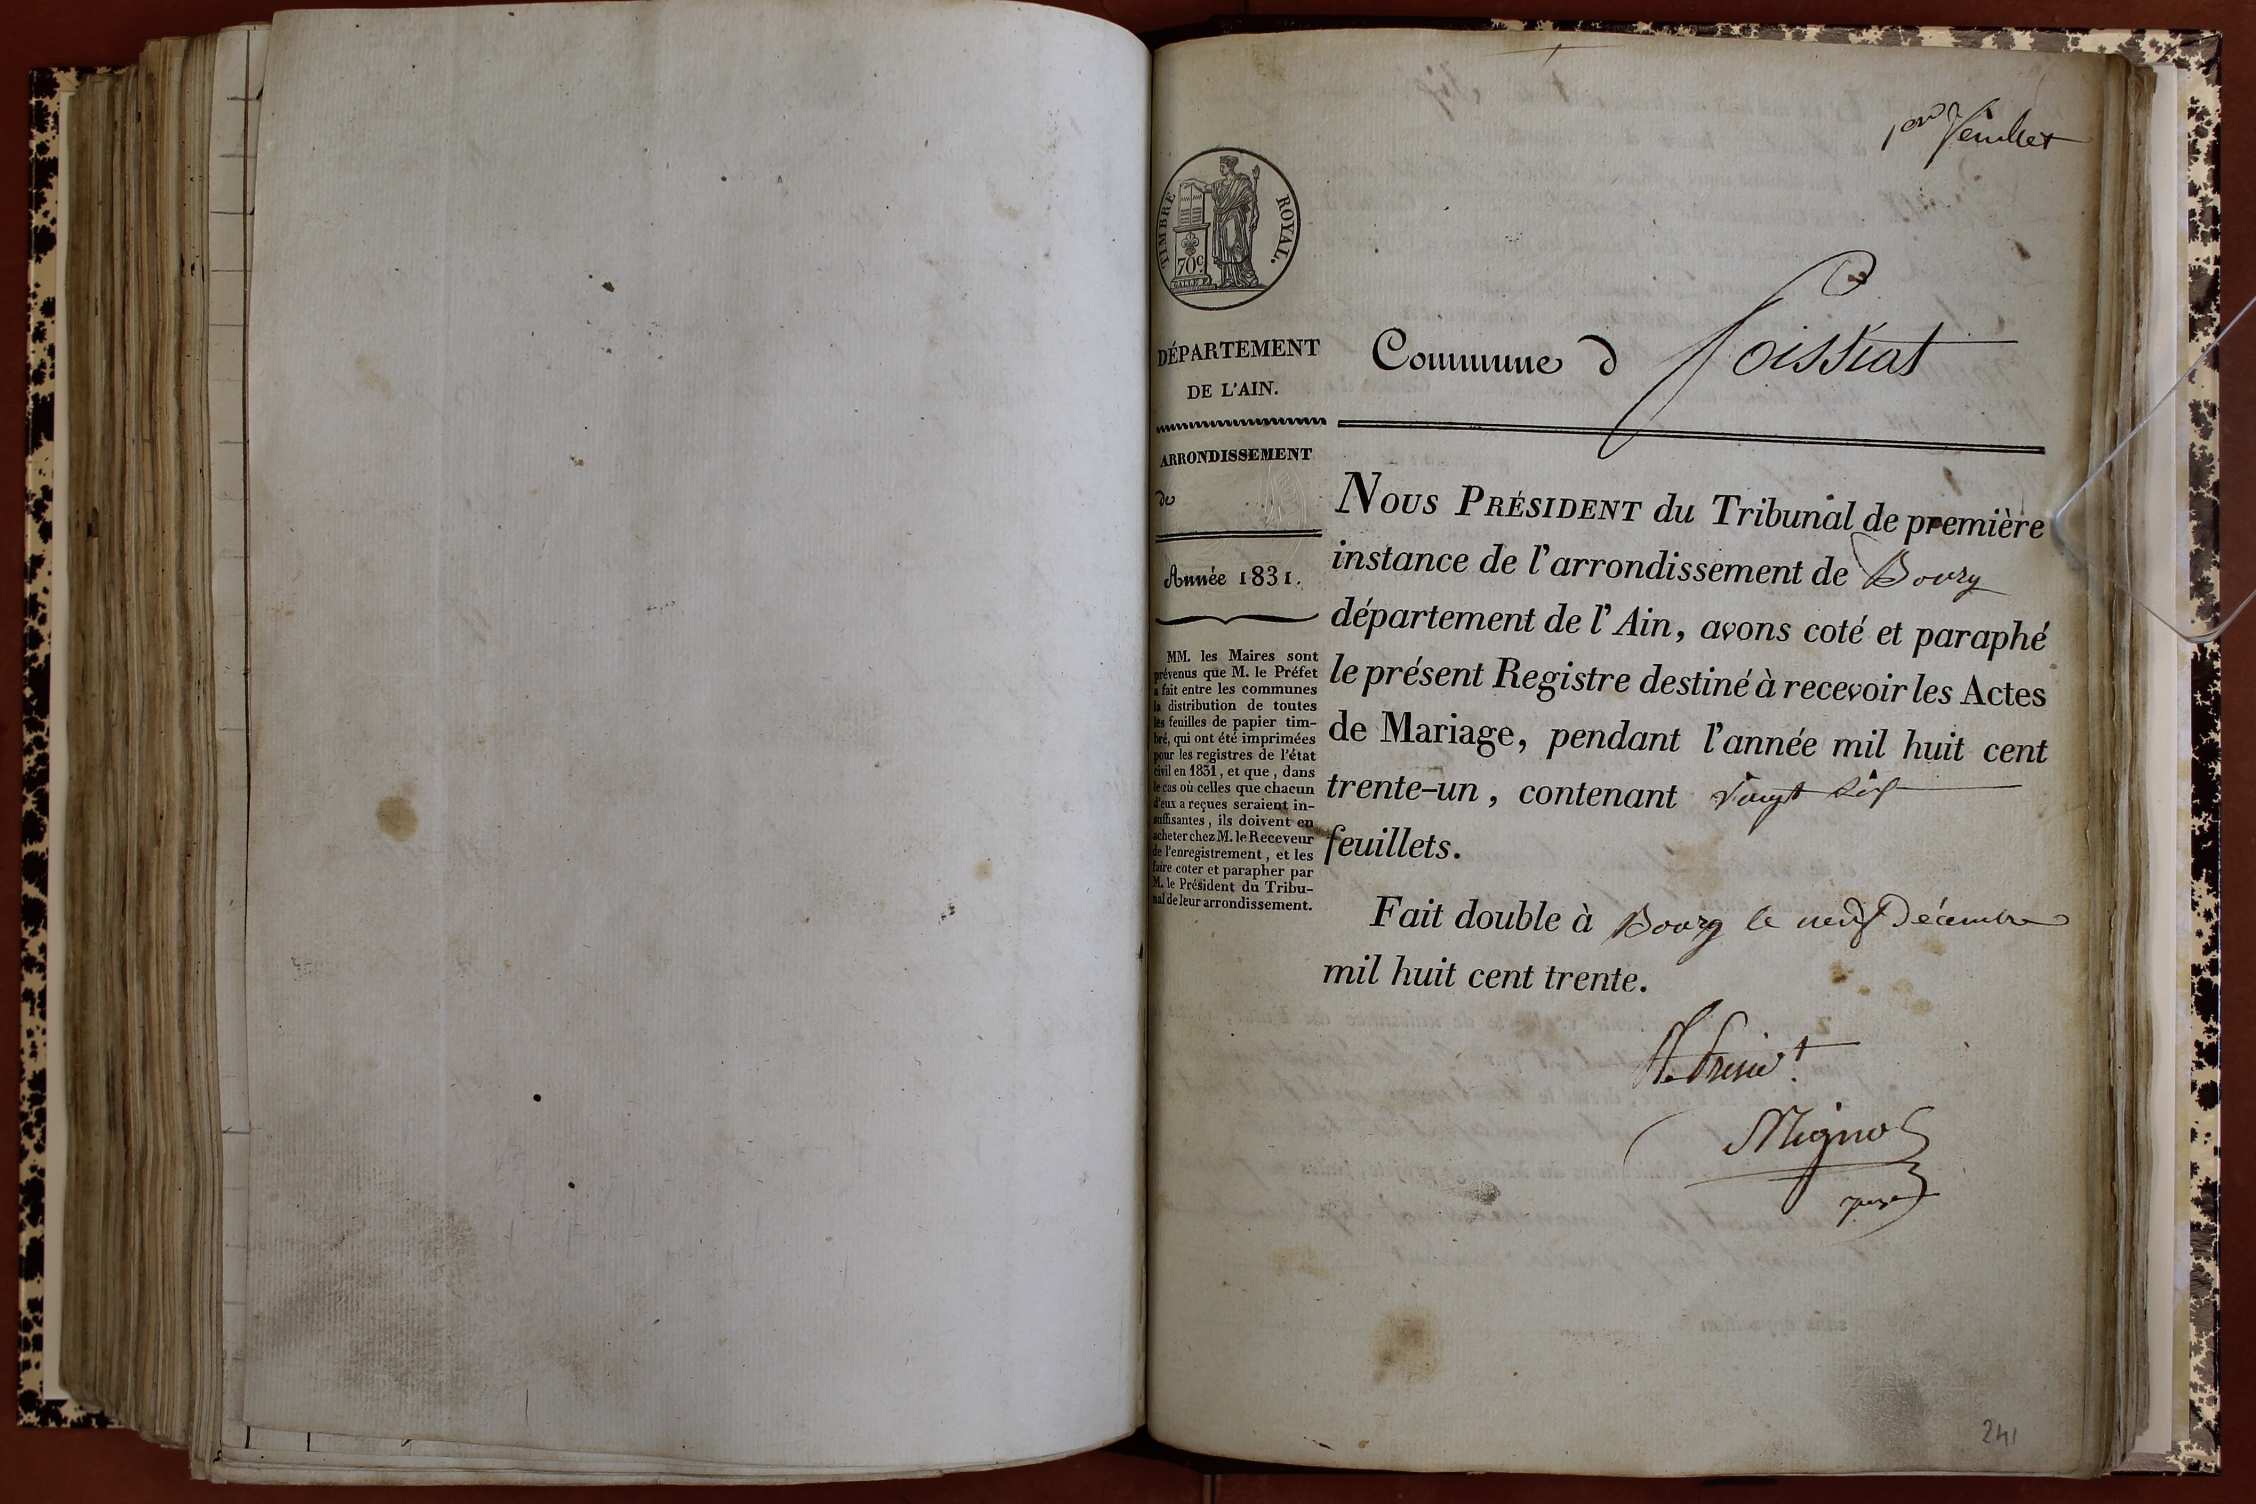 1er feuillet
TIMBRE ROYAL.
70c.
GALLE F.
DÉPARTEMENT
DE L'AIN.
Commune d Foissiat
ARRONDISSEMENT
de
Année 1831.
MM. les Maires sont
prévenus que M. le Préfet
a fait entre les communes
la distribution de toutes
les feuilles de papier tim-
bré, qui ont été imprimées
pour les registres de l'état
civil en 1831, et que, dans
le cas où celles que chacun
d'eux a reçues seraient in-
suffisantes, ils doivent en
acheter chez M. le Receveur
de l'enregistrement, et les
faire coter et parapher par
M. le Président du Tribu-
nal de leur arrondissement.
NOUS PRÉSIDENT du Tribunal de première
instance de l'arrondissement de Bourg
département de l'Ain, avons coté et paraphé
le présent Registre destiné à recevoir les Actes
de Mariage, pendant l'année mil huit cent
trente-un, contenant vingt six
feuillets.
Fait double à Bourg le neuf Décembre
mil huit cent trente.
juge
241